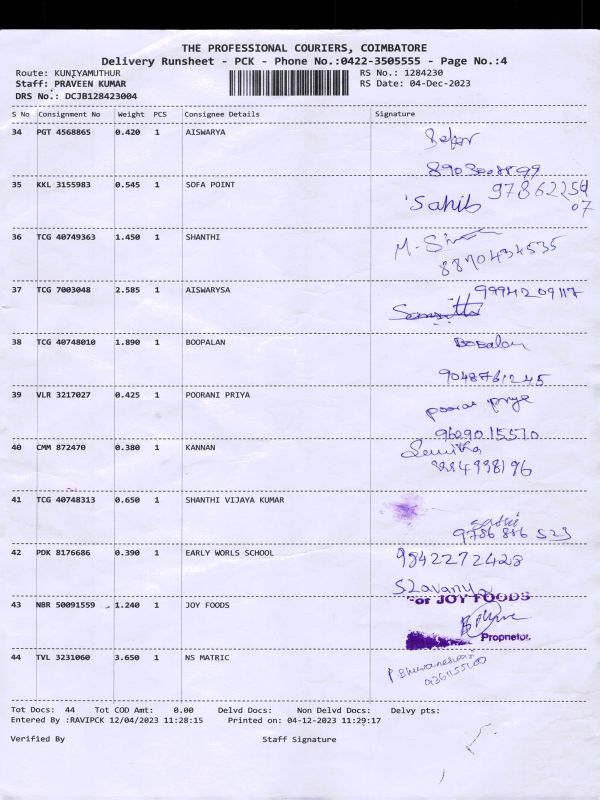 THE PROFESSIONAL COURIERS, COIMBATORE
Delivery Runsheet - PCK - Phone No.:0422-3505555 - Page No.:4
Route: KUNIYAMUTHUR RS No.: 1284230
Staff: PRAVEEN KUMAR RS Date: 04-Dec-2023
DRS No.: DCJB128423004
S No Consignment No Weight PCS Consignee Details Signature
34 PGT 4568865 0.420 1 AISWARYA
35 KKL 3155983 0.545 1 SOFA POINT 97862254
Sahib 07
36 TCG 40749363 1.450 1 SHANTHI M.
8870434535
37 TCG 7003048 2.585 1 AISWARYSA 9994209117
38 TCG 40748010 1.890 1 BOOPALAN Boopalan
9048761245
39 VLR 3217027 0.425 1 POORANI PRIYA
9629015570
40 CMM 872470 0.380 1 KANNAN
41 TCG 40748313 0.650 1 SHANTHI VIJAYA KUMAR
9786 886 523
42 PDK 8176686 0.390 1 EARLY WORLS SCHOOL 9842272428
Slavanya
43 NBR 50091559 1.240 1 JOY FOODS For JOY FOODS
Proprietor.
44 TVL 3231060 3.650 1 NS MATRIC P Bhuvaneswari
Tot Docs: 44 Tot COD Amt: 0.00 Delvd Docs: Non Delvd Docs: Delvy pts:
Entered By :RAVIPCK 12/04/2023 11:28:15 Printed on: 04-12-2023 11:29:17
Verified By Staff Signature